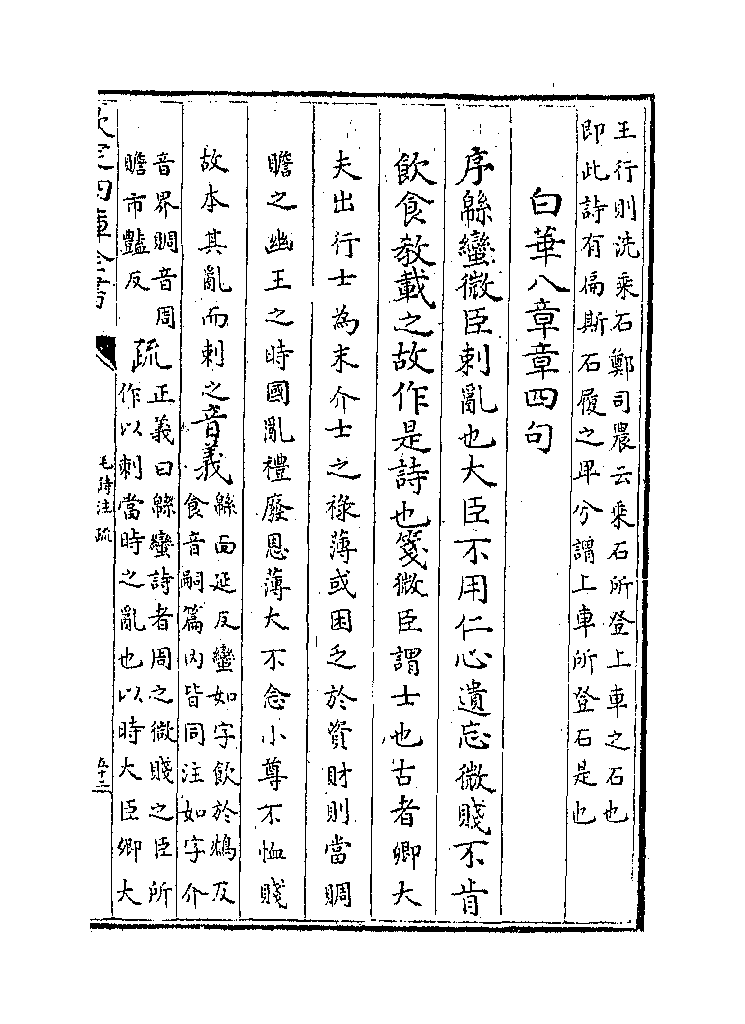 王行則洗乘石鄭司農云乘石所登上車之石也
即此詩有扁斯石履之卑兮謂上車所登石是也
白華八章章四句
序緜蠻微臣刺亂也大臣不用仁心遺忘微賤不肯
飲食教載之故作是詩也箋微臣謂士也古者卿大
夫出行士為末介士之祿薄或困乏於資財則當賙
贍之幽王之時國亂禮廢恩薄大不念小尊不恤賤
故本其亂而刺之音義
緜面延反蠻如字飲於鴆反
食音嗣篇内皆同注如字介
音界賙音周
贍市豔反
疏
正義曰緜蠻詩者周之微賤之臣所
作以刺當時之亂也以時大臣卿大
欽定四庫全書
毛詩注疏